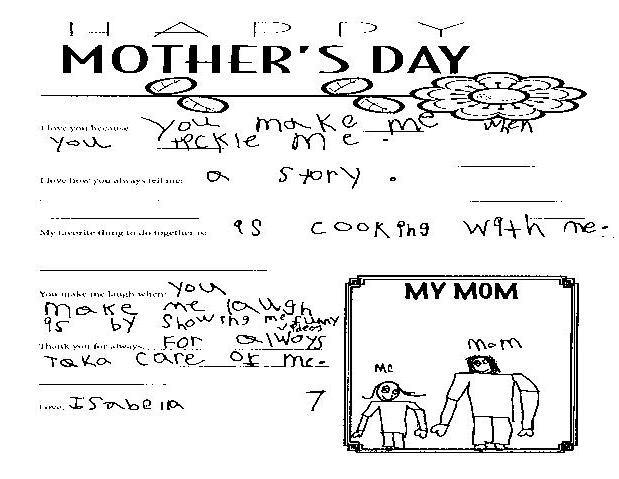 HAPPY
MOTHER'S DAY
I love you because you make me when
you teckle me.
I love how you always tell me: a story.
My favorite thing to do together is: is cooking with me.
You make me laugh when: you
make me laugh
is by showing me funny
videos
Thank you for always FOR always
Taka care of me.
Love, Isabella 7
MY MOM
Me
Mom